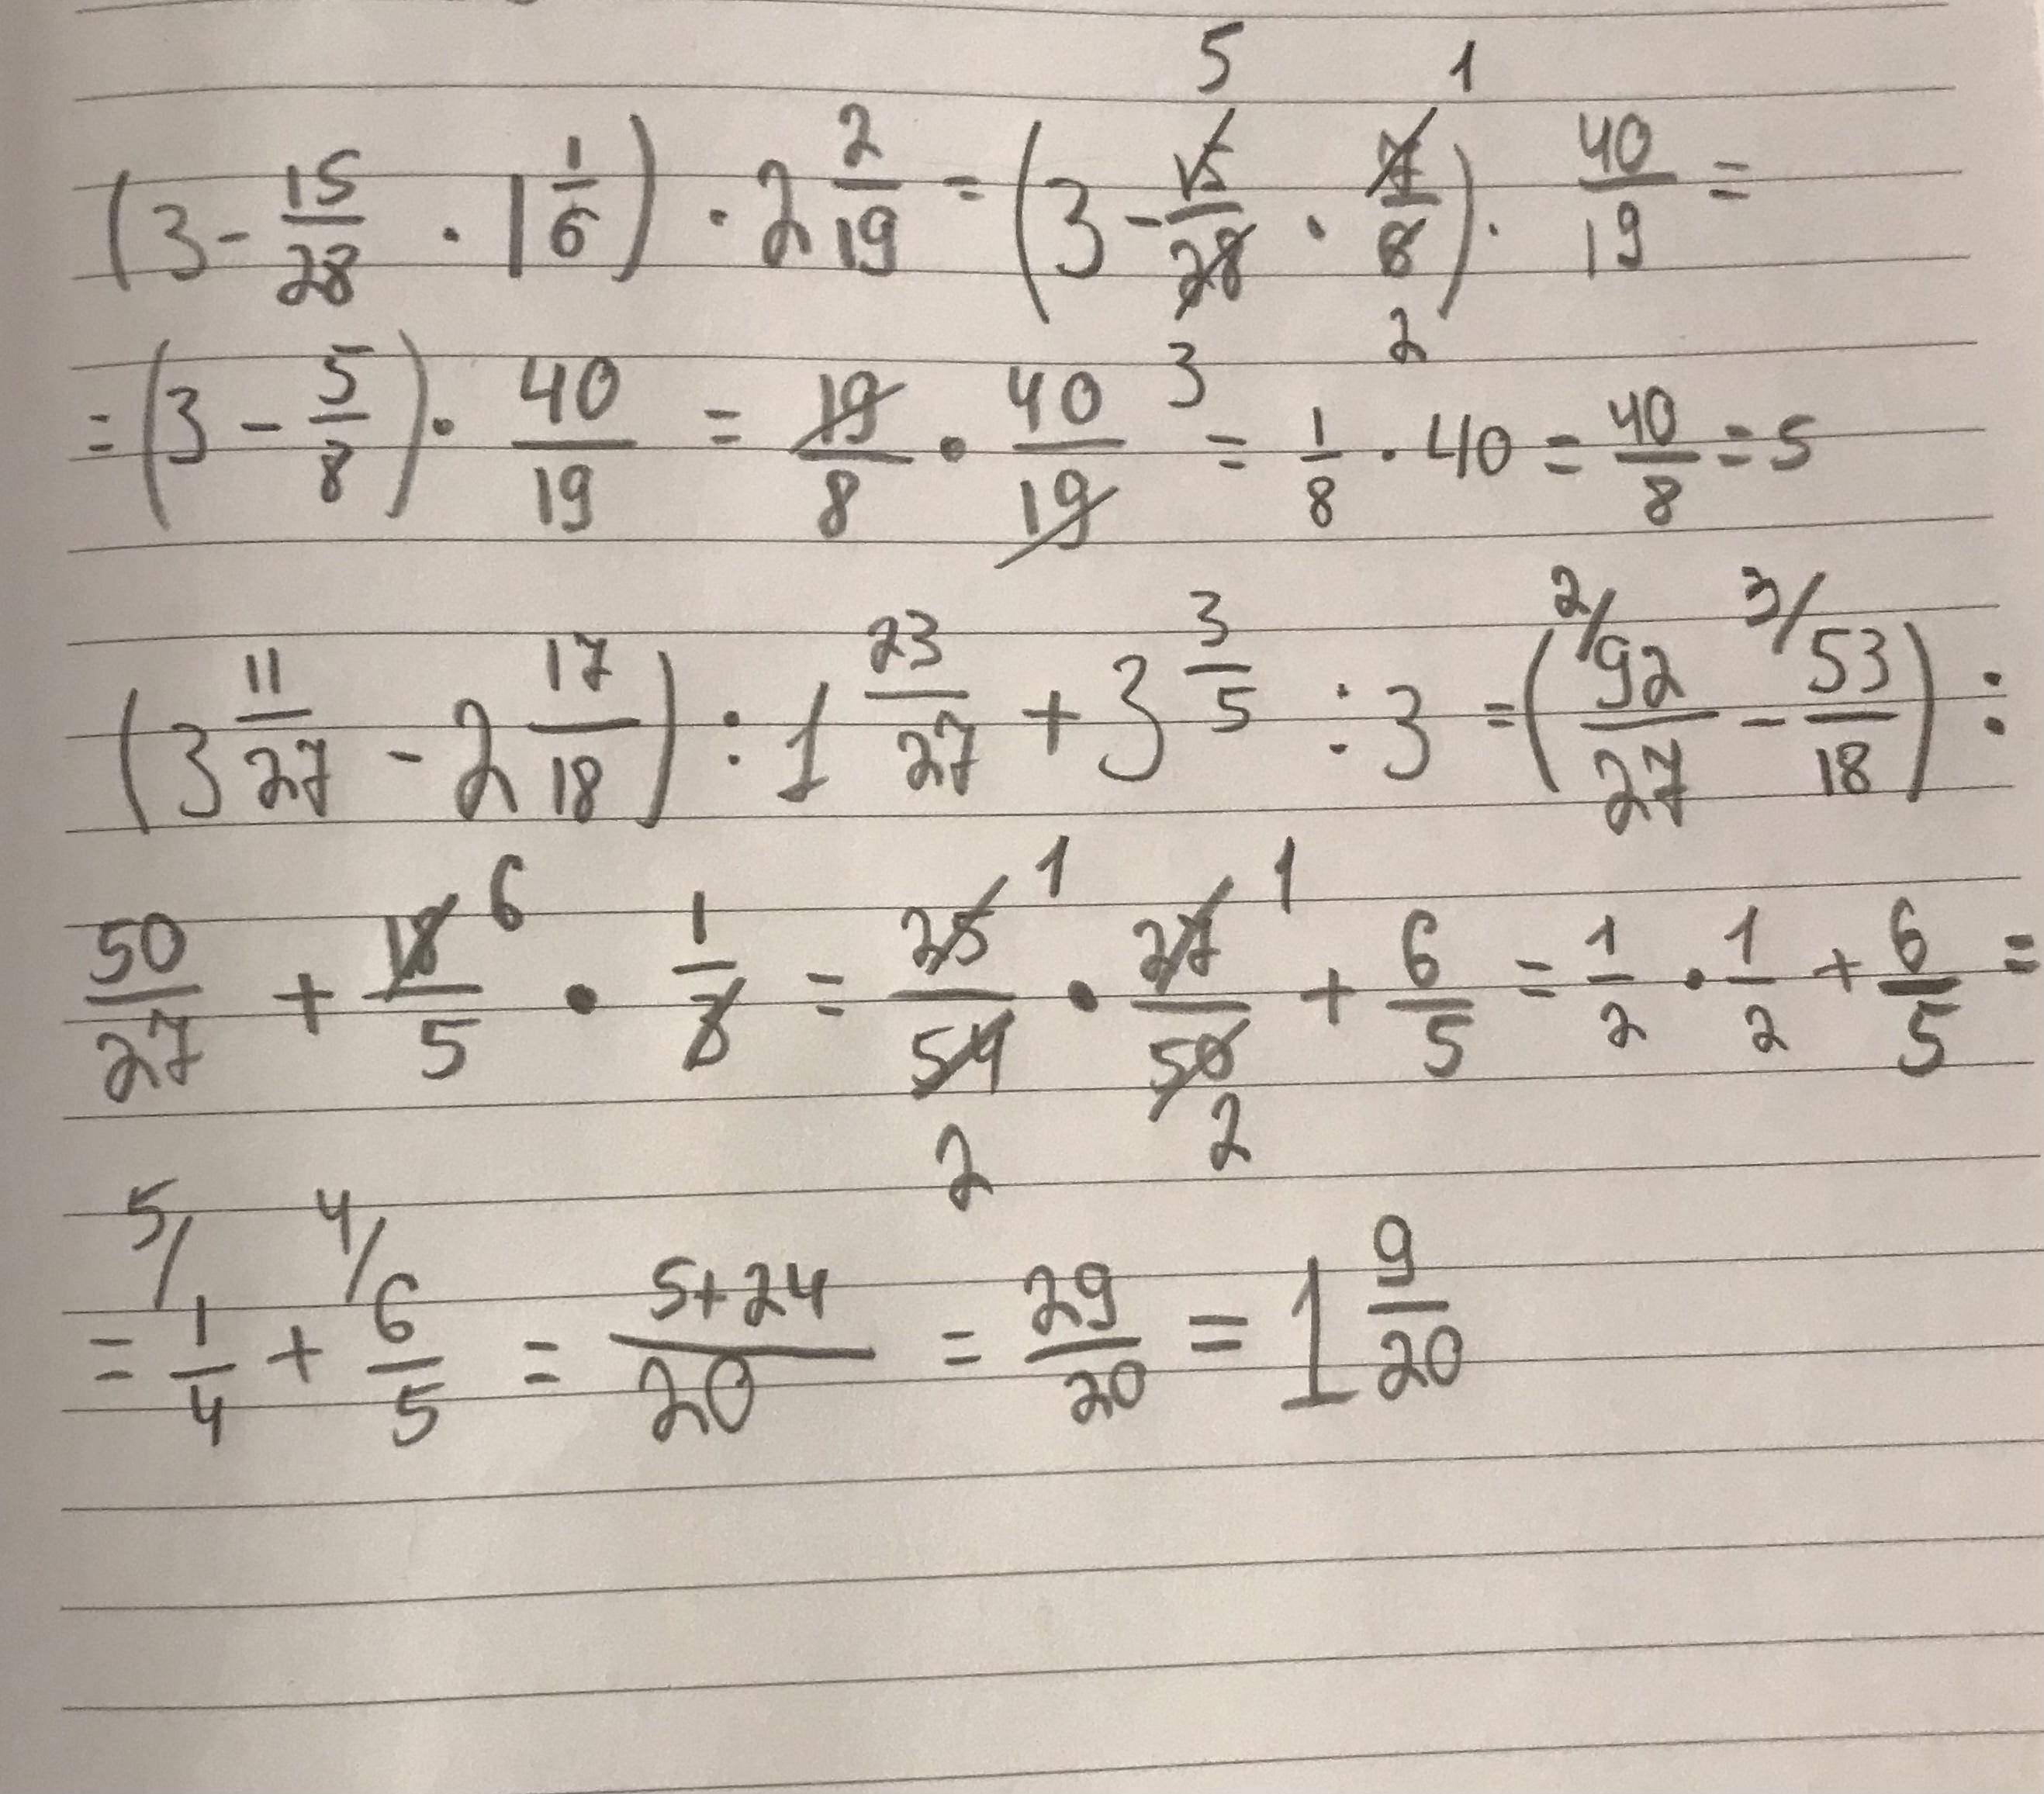 (3 - 15/28 · 1 1/6) · 2 2/19 = (3 - 15/28 · 7/8) · 40/19 =
5 1
3 2
= (3 - 5/8) · 40/19 = 19/8 · 40/19 = 1/8 · 40 = 40/8 = 5
(3 11/27 - 2 17/18) : 1 23/27 + 3 3/5 : 3 = (2/ 92/27 - 3/ 53/18) :
50/27 + 18/5 · 1/3 = 25/54 · 27/50 + 6/5 = 1/2 · 1/2 + 6/5 =
6 1 1
2 2
= 5/ 1/4 + 4/ 6/5 = 5+24/20 = 29/20 = 1 9/20